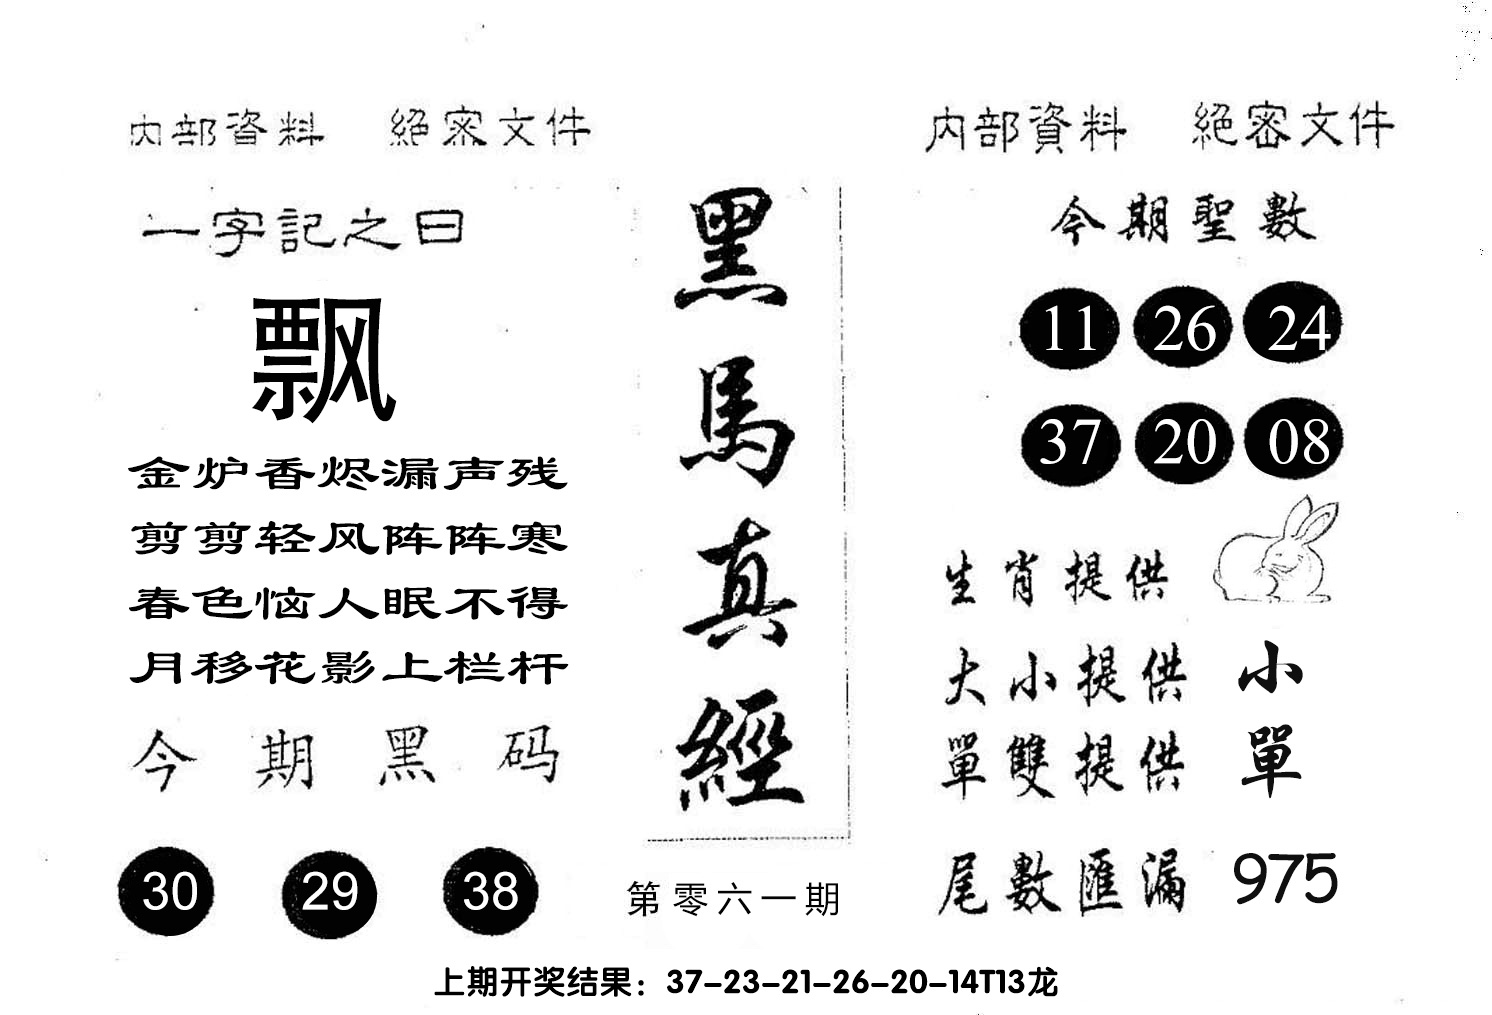 内部資料 絕密文件
一字記之曰
飘
金炉香烬漏声残
剪剪轻风阵阵寒
春色恼人眠不得
月移花影上栏杆
今期黑码
30 29 38
黑馬真經
第零六一期
内部資料 絕密文件
今期聖數
11 26 24
37 20 08
生肖提供
大小提供 小
單雙提供 單
尾數匯漏 975
上期开奖结果：37-23-21-26-20-14T13龙